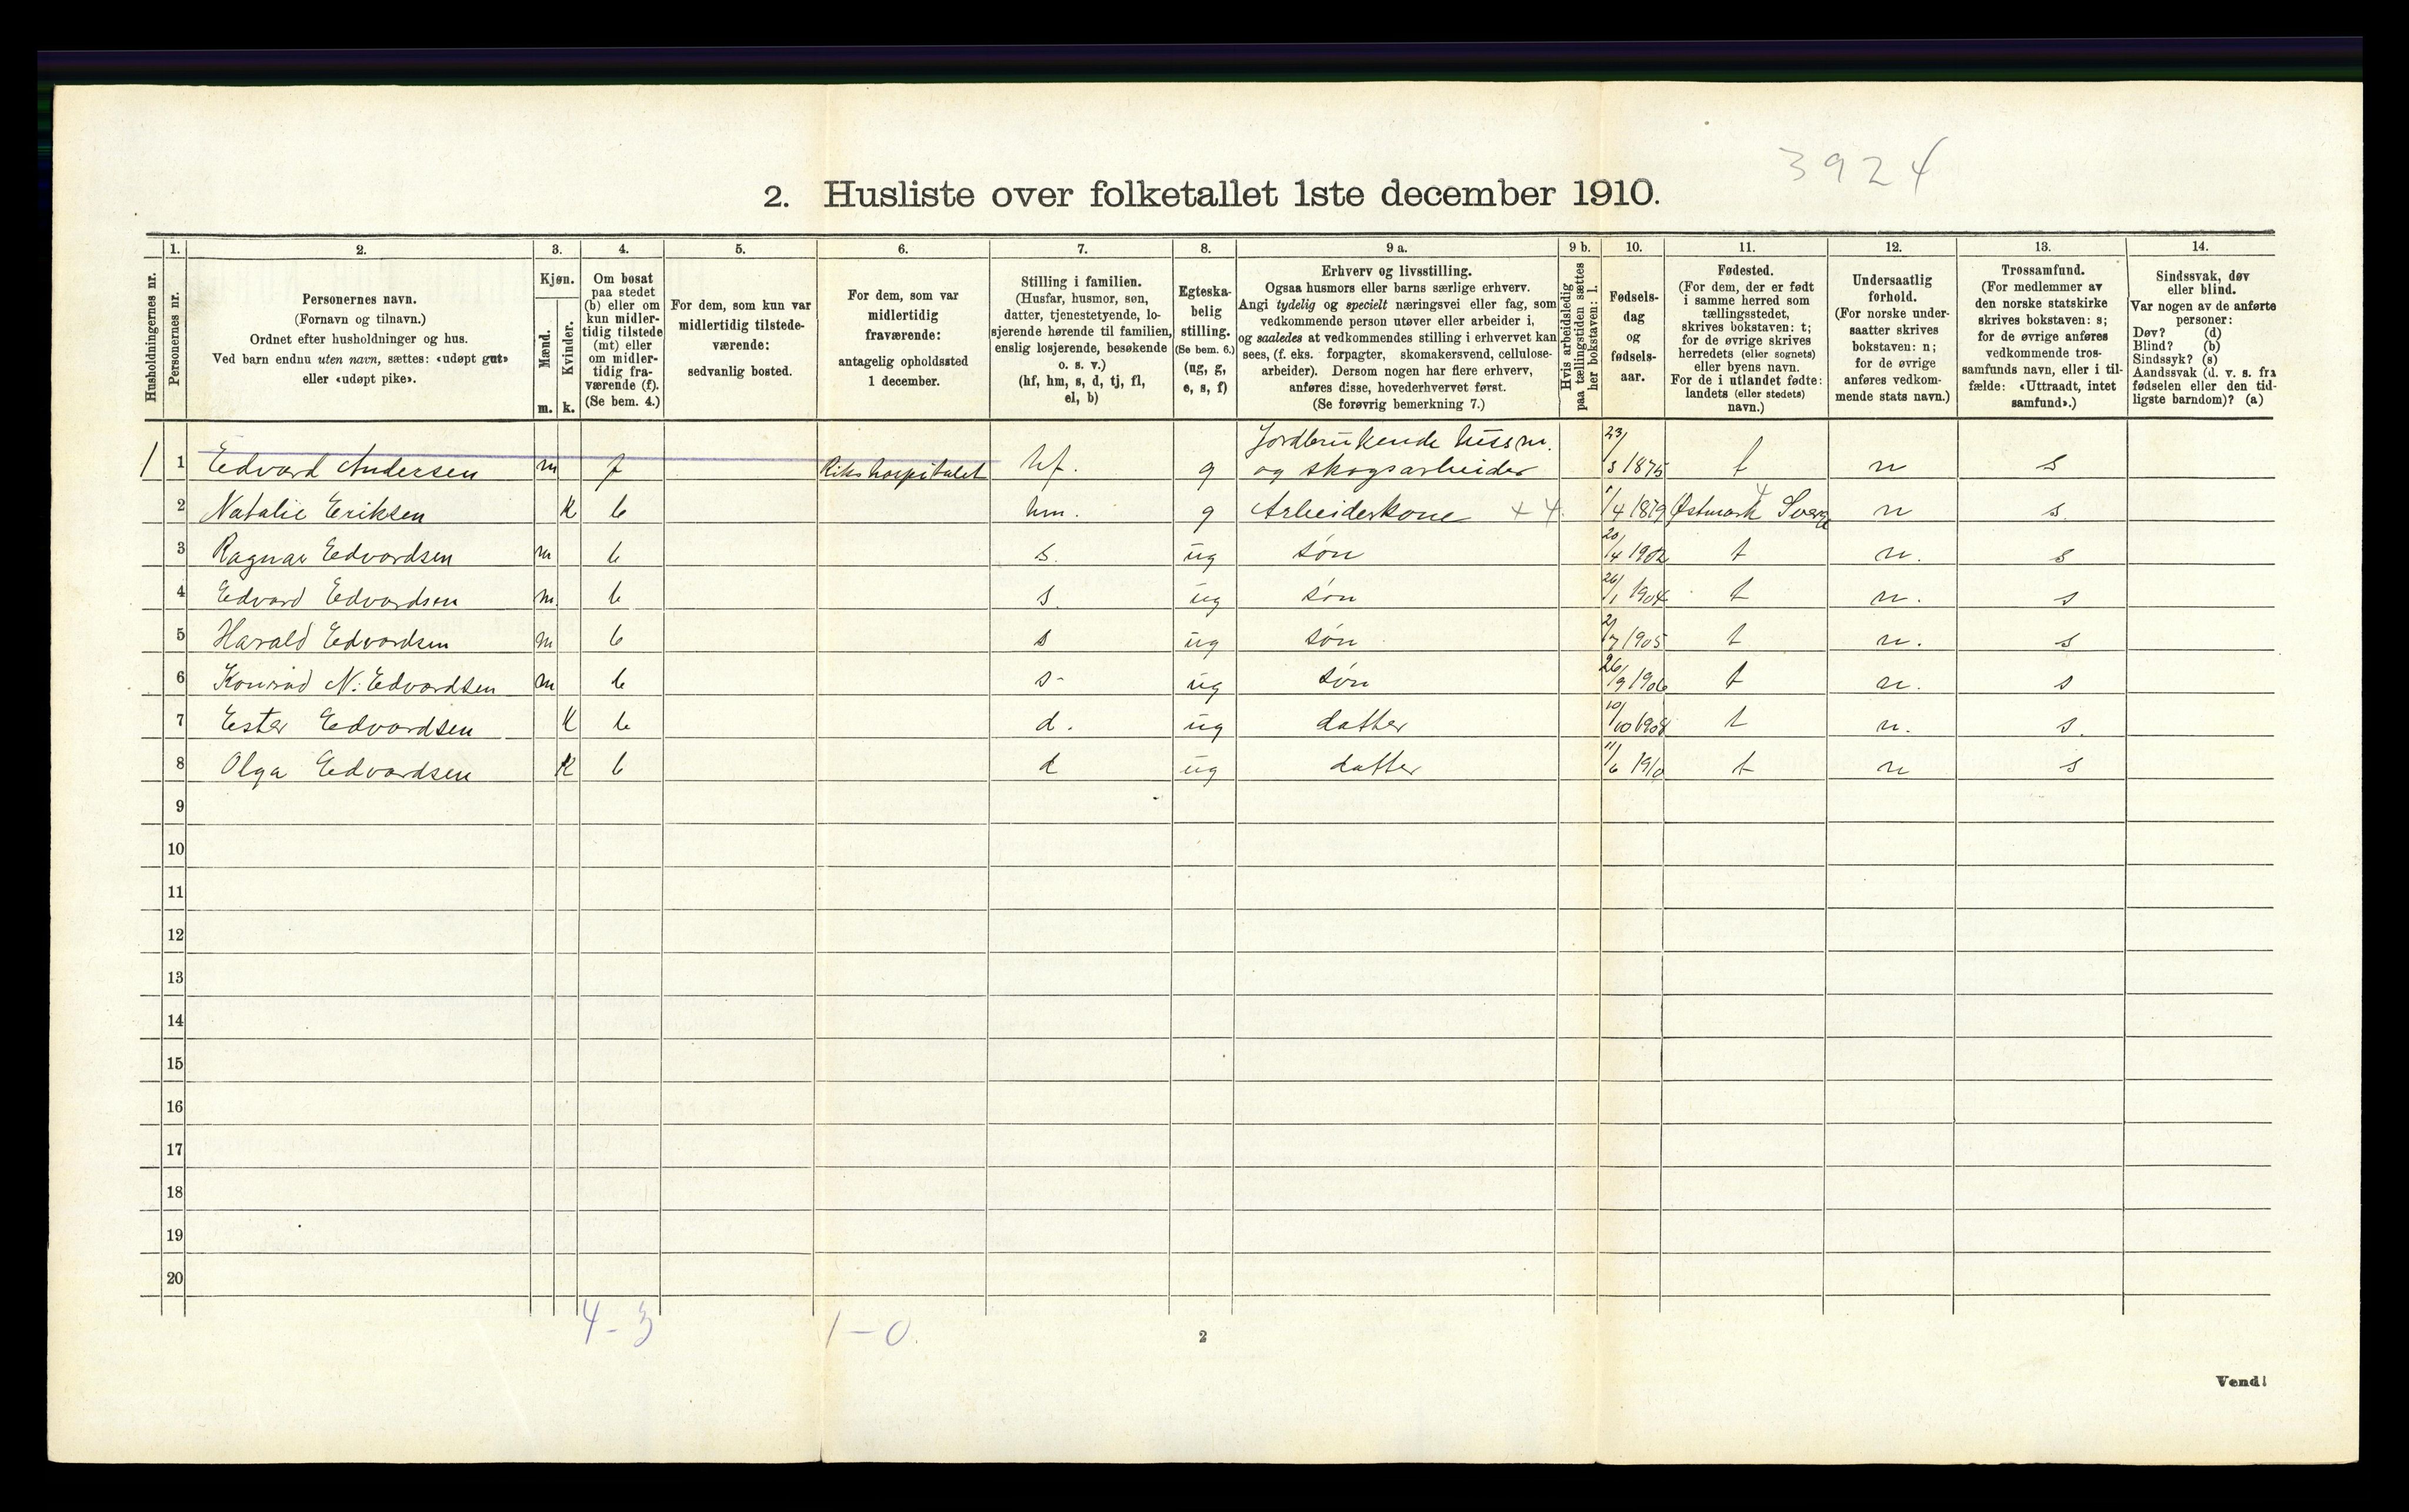 3924
2. Husliste over folketallet 1ste december 1910.
Husholdningernes nr.
1.
Personernes nr.
2.
Personernes navn.
(Fornavn og tilnavn.)
Ordnet efter husholdninger og hus.
Ved barn endnu uten navn, sættes: «udøpt gut»
eller «udøpt pike».
3.
Kjøn.
Mænd.
Kvinder.
m. k.
4.
Om bosat
paa stedet
(b) eller om
kun midler-
tidig tilstede
(mt) eller
om midler-
tidig fra-
værende (f).
(Se bem. 4.)
5.
For dem, som kun var
midlertidig tilstede-
værende:
sedvanlig bosted.
6.
For dem, som var
midlertidig
fraværende:
antagelig opholdssted
1 december.
7.
Stilling i familien.
(Husfar, husmor, søn,
datter, tjenestetyende, lo-
sjerende hørende til familien,
enslig losjerende, besøkende
o. s. v.)
(hf, hm, s, d, tj, fl,
el, b)
8.
Egteska-
belig
stilling.
(Se bem. 6.)
(ug, g,
e, s, f)
9 a.
Erhverv og livsstilling.
Ogsaa husmors eller barns særlige erhverv.
Angi tydelig og specielt næringsvei eller fag, som
vedkommende person utøver eller arbeider i,
og saaledes at vedkommendes stilling i erhvervet kan
sees, (f. eks. forpagter, skomakersvend, cellulose-
arbeider). Dersom nogen har flere erhverv,
anføres disse, hovederhvervet først.
(Se forøvrig bemerkning 7.)
9 b.
Hvis arbeidsledig
paa tællingstiden sættes
her bokstaven: l.
10.
Fødsels-
dag
og
fødsels-
aar.
11.
Fødested.
(For dem, der er født
i samme herred som
tællingsstedet,
skrives bokstaven: t;
for de øvrige skrives
herredets (eller sognets)
eller byens navn.
For de i utlandet fødte:
landets (eller stedets)
navn.)
12.
Undersaatlig
forhold.
(For norske under-
saatter skrives
bokstaven: n;
for de øvrige
anføres vedkom-
mende stats navn.)
13.
Trossamfund.
(For medlemmer av
den norske statskirke
skrives bokstaven: s;
for de øvrige anføres
vedkommende tros-
samfunds navn, eller i til-
fælde: «Uttraadt, intet
samfund».)
14.
Sindssvak, døv
eller blind.
Var nogen av de anførte
personer:
Døv? (d)
Blind? (b)
Sindssyk? (s)
Aandssvak (d. v. s. fra
fødselen eller den tid-
ligste barndom)? (a)
1 1 Edvard Andersen m f Rikshospitalet hf. g Jordbrukende hussm. og skogsarbeider 23/3 1875 t n s
2 Natalie Eriksen k b hm. g Arbeiderkone ++ 1/4 1879 Østmark Sverge n s.
3 Ragnar Edvardsen m b s. ug søn 20/4 1902 t n. s
4 Edvard Edvardsen m. b s. ug søn 26/1 1904 t n. s
5 Harald Edvardsen m b s ug søn 2/7 1905 t n. s
6 Konrad N. Edvardsen m b s- ug søn 26/9 1906 t n. s
7 Ester Edvardsen k b d. ug datter 10/10 1908 t n. s.
8 Olga Edvardsen k b d ug datter 11/6 1910 t n s
9
10
11
12
13
14
15
16
17
18
19
20
4-3 1-0.
2
Vend!